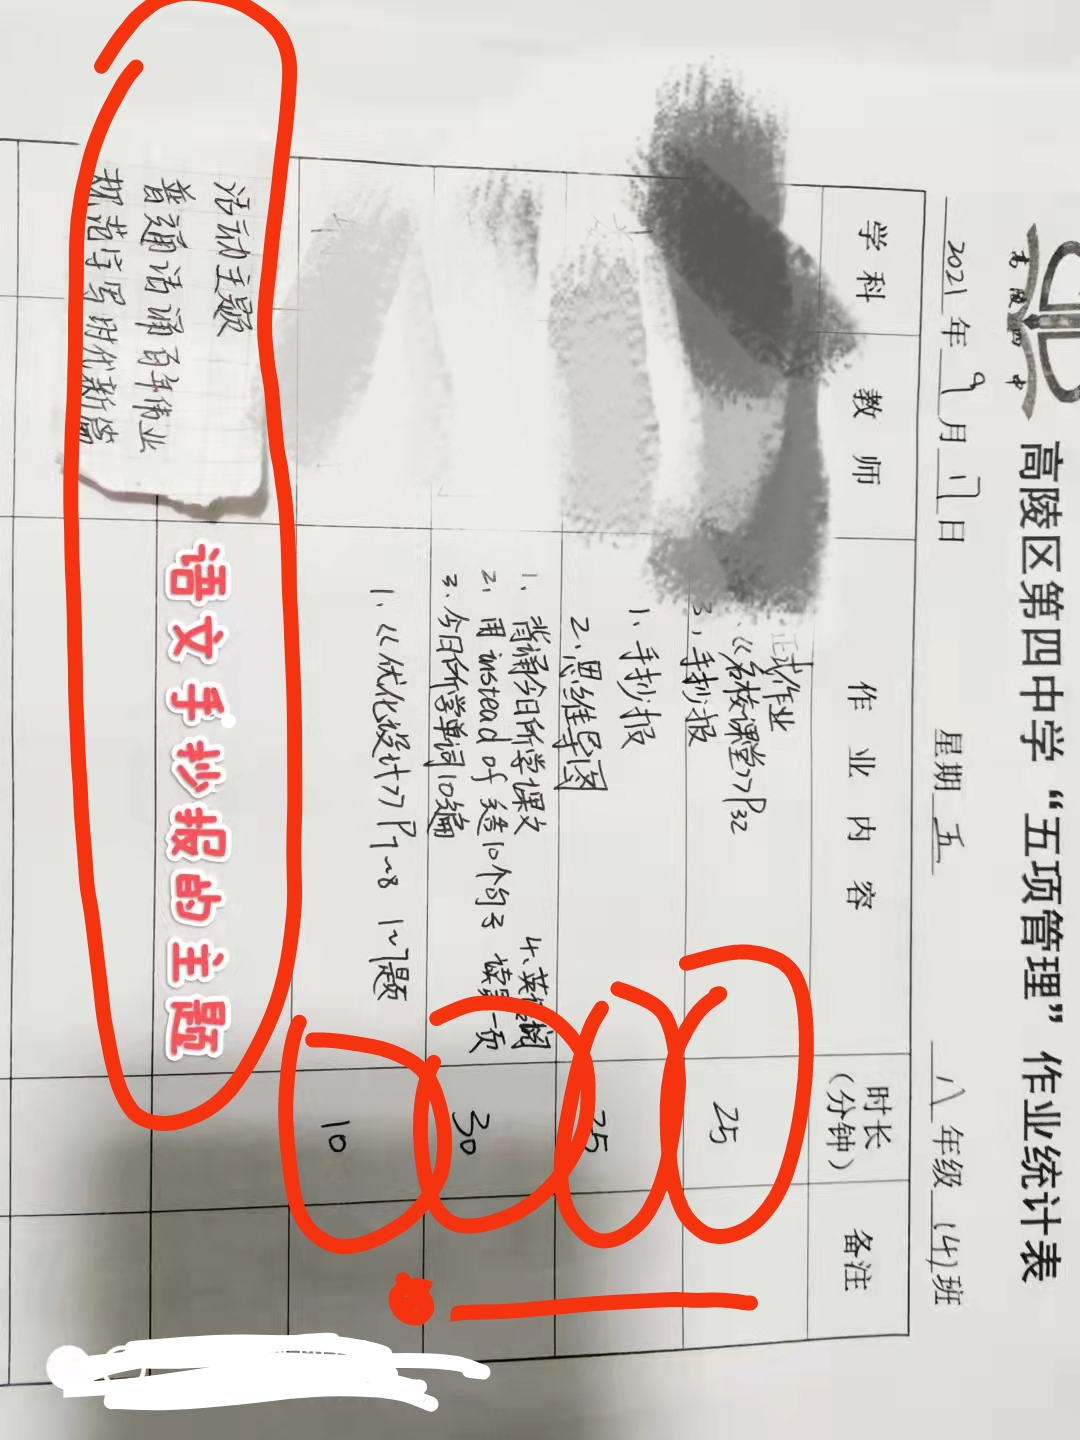 高陵四中
高陵区第四中学“五项管理”作业统计表
2021年9月17日 星期五 八年级(4)班
学科 教师 作业内容 时长（分钟） 备注
正式作业
《名校课堂》P32
3、手抄报
25
1、手抄报
2、思维导图
25
1、背诵今日所学课文
2、用instead of 造10个句子
3、今日所学单词10遍
30
1、《优化设计》P7~8 1~7题
10
活动主题
普通话诵百年伟业
规范字写时代新篇
语文手抄报的主题